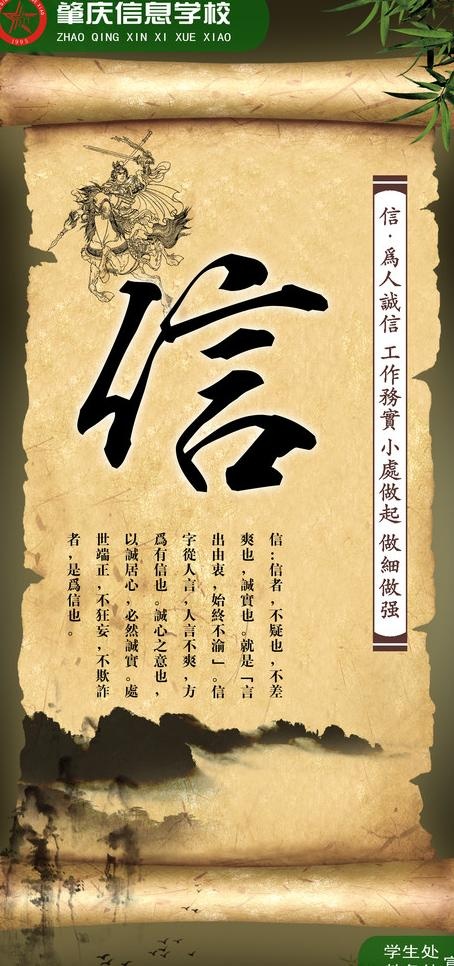 肇庆信息学校
ZHAO QING XIN XI XUE XIAO
1995
信·爲人誠信 工作務實 小處做起 做細做强
信
信：信者，不疑也，不差
爽也，誠實也。就是「言
出由衷，始終不渝」。信
字從人言，人言不爽，方
爲有信也。誠心之意也，
以誠居心，必然誠實。處
世端正，不狂妄，不欺詐
者，是爲信也。
学生处